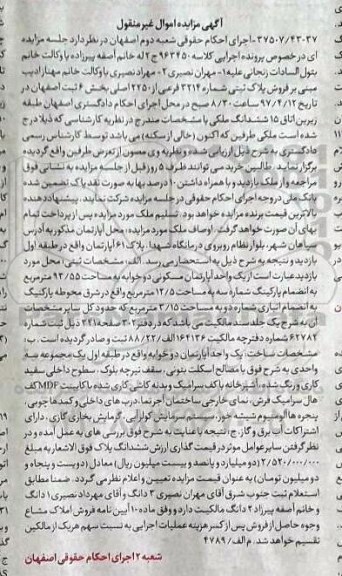 آگهی مزایده اموال غیر منقول
۳۷۵۰۷/۴۳-۳۷- اجرای احکام حقوقی شعبه دوم اصفهان در نظر دارد جلسه مزایده
ای در خصوص پرونده اجرایی کلاسه ۹۶۳۴۵۰ ج۲ له خانم آصفه پیرزاد با وکالت خانم
بتول السادات زنجانی علیه ۱- مهران نصیری ۲- مهرداد نصیری با وکالت خانم مهناز ادیب
مبنی بر فروش پلاک ثبتی شماره ۳۲۱۴ فرعی از ۲۲۵۰ اصلی بخش ۶ ثبت اصفهان در
تاریخ ۹۷/۴/۱۲ ساعت ۸/۳۰ صبح در محل اجرای احکام دادگستری اصفهان طبقه
زیرین اتاق ۱۵ ششدانگ ملکی با مشخصات مندرج در نظریه کارشناسی که ذیلا درج
شده است ملکی طرفین که اکنون (خالی از سکنه) می باشد توسط کارشناس رسمی
دادگستری به شرح ذیل ارزیابی شده و نظریه وی مصون از تعرض طرفین واقع گردیده
برگزار نماید. طالبین خرید می توانند ظرف ۵ روز قبل از جلسه مزایده به نشانی فوق
مراجعه و از ملک بازدید و با همراه داشتن ۱۰ درصد بها به صورت نقد پاک تضمین شده
بانک ملی در وجه اجرای احکام حقوقی در جلسه مزایده شرکت نمایند. پیشنهاددهنده
بالاترین قیمت برنده مزایده خواهد بود. تسلیم ملک مورد مزایده پس از پرداخت تمام
بهای آن صورت خواهد گرفت. اوصاف ملک مورد مزایده: محل آپارتمان مذکور به آدرس
سپاهان شهر، بلوار نظام روبروی درمانگاه شهدا، پلاک ۶۱ آپارتمان واقع در طبقه اول
بازدید و نتیجه به شرح ذیل به استحضار می رسد. الف: مشخصات ثبتی: محل مورد
بازدید عبارت است از یک واحد آپارتمان مسکونی دوخوابه به مساحت ۹۳/۵۵ مترمربع
به انضمام پارکینگ شماره سه به مساحت ۱۲/۵ مترمربع واقع در شرق محوطه پارکینگ
به انضمام انباری شماره دو به مساحت ۳/۱۵ مترمربع که حدود کل سایر مشخصات
آن به شرح یک جلد سند مالکیت می باشد که در دفتر ۳۰۲ صفحه ۲۲۱ ذیل ثبت شماره
۶۲۷۸۲ شماره دفترچه مالکیت ۱۶۴۱۳۶ الف/۸۸/۲۲ ثبت و صادر گردیده است. ب:
مشخصات ساخت: یک واحد آپارتمان دوخوابه واقع در طبقه اول یک مجموعه سه
واحدی به شرح فوق با مصالح اسکلت بتونی، سقف تیرچه بلوک، سطوح داخلی سفید
کاری و رنگ شده، آشپزخانه با کف سرامیک و بدنه کاشی کاری شده با کابینت MDF کف
هال سرامیک فرش، نمای خارجی ساختمان آجرنما، درب های داخلی و کمدها چوبی،
پنجره ها آلومینیوم شیشه خور، سیستم سرمایش کولر آبی، گرمایش بخاری گازی، دارای
اشتراکات آب، برق و گاز. ج: نتیجه با عنایت به شرح فوق بررسی های به عمل آمده و در
نظر گرفتن سایر عوامل موثر در قیمت گذاری ارزش ششدانگ پلاک فوق الاشعار به مبلغ
۲/۵۲۰/۰۰۰/۰۰۰ (دو میلیارد و پانصد و بیست میلیون ریال) معادل (دویست و پنجاه و
دو میلیون تومان) به عنوان قیمت مزایده تعیین و اعلام نظر می گردد. ضمنا مطابق
استعلام ثبت جنوب شرق آقای مهران نصیری ۳ دانگ و آقای مهرداد نصیری ۱ دانگ
و خانم آصفه پیرزاد ۲ دانگ مالکیت دارد و وفق ماده ۱۰ آیین نامه فروش املاک مشاع
وجوه حاصل از فروش پس از کسر هزینه عملیات اجرایی به نسبت سهم هریک از مالکین
تقسیم خواهد شد. م الف/ ۴۷۸۹
شعبه ۲ اجرای احکام حقوقی اصفهان